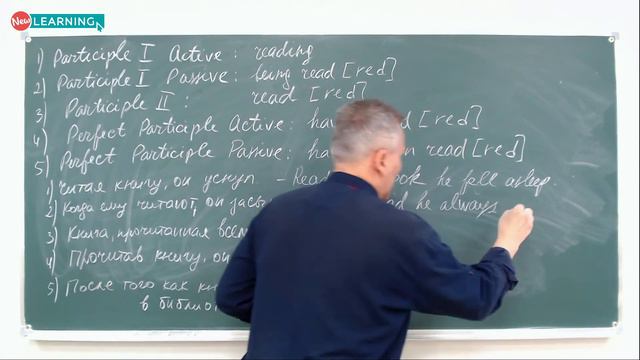 New LEARNING
1) Participle I Active: reading
2) Participle I Passive: being read [red]
3) Participle II: read [red]
4) Perfect Participle Active: [red]
5) Perfect Participle Passive: read [red]
1) Читая книгу, он уснул - he fell asleep.
2) Когда ему читают, он he always
3) Книга, прочитанная
4) Прочитав книгу, он
5) После того как
в